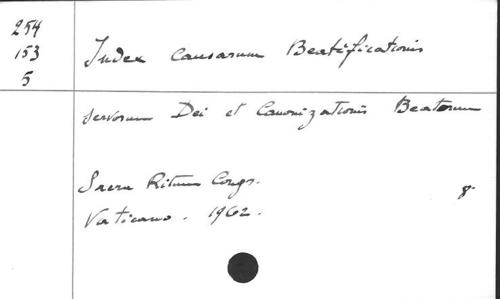 254
153
5
Index Causarum Beatificationis
servorum Dei et Canonizationis Beatorum
Sacra Rituum Congr.
Vaticano. 1962.
8°